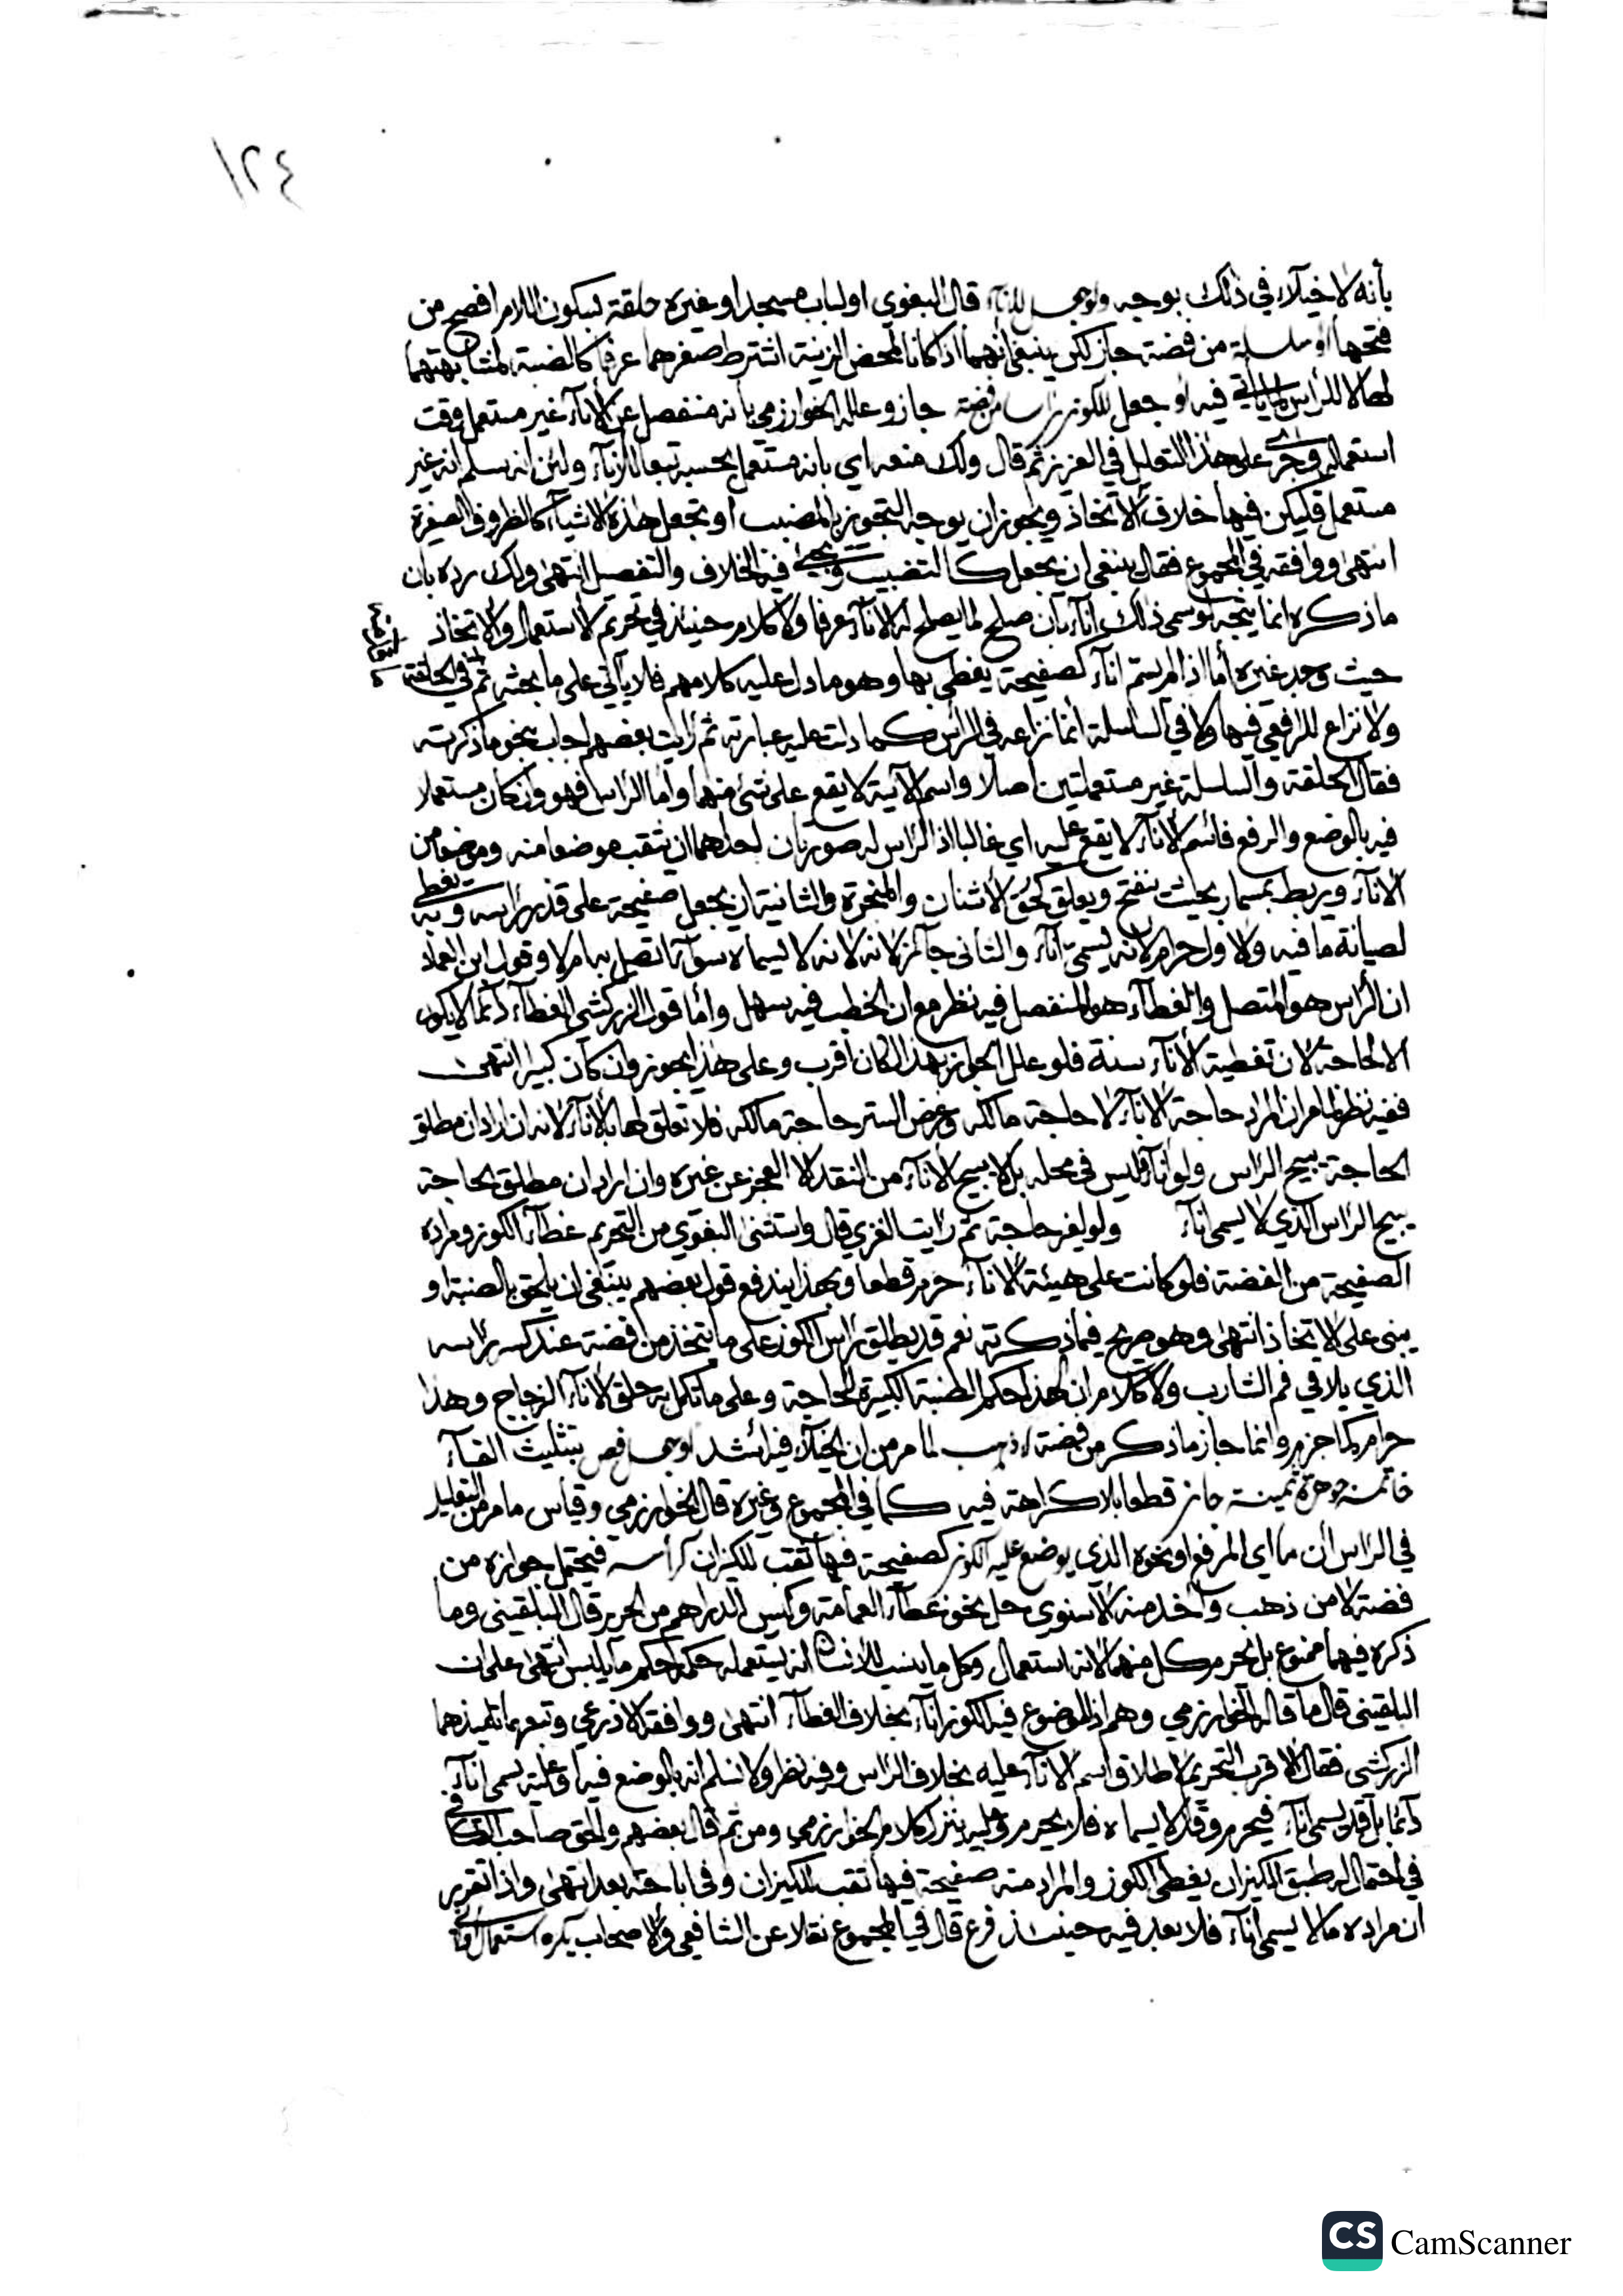 ١٢٤
بأنه لا خيلاء في ذلك بوجه ولو جعل للإناء قال البغوي او لباب مسجد او غيره حلقة بسكون اللام افصح من
فتحها او سلسلة من فضة جاز لكن ينبغي أنهما اذا كانا لمحض الزينة اشترط صغرهما عرفا كالضبة لمشابهتهما
لها لا للرأس لما يأتي فيه او جعل للكوز راسا من فضة جاز وعلله الخوارزمي بأنه منفصل عن الاناء غير مستعمل وقت
استعماله وجرى على هذا التعليل في العزيز ثم قال ولك منعه اي بانه مستعمل بحسبه تبعا للاناء ولئن انه سلم انه غير
مستعمل فليكن فيها خلاف الاتخاذ ويجوز ان يوجه التجويز بالمضبب او تجعل هذه الاشياء كالظروف الصغيرة
انتهى ووافقه في المجموع فقال ينبغي ان يجعل كالتضبيب ويجيء فيه الخلاف والتفصيل انتهى ولك رده بان
ما ذكره انما يتجه لو سمى ذلك اناء بان صلح لما يصلح له الاناء عرفا ولا كلام حينئذ في تحريم الاستعمال والاتخاذ
حيث وجد غيره أما اذا لم يسم اناء كصفيحة يغطي بها وهو ما دل عليه كلامهم فلا يأتي على ما بحثه ثم في الحلقة
ولا نزاع للرافعي فيها ولا في السلسلة انما نزاعه في الرأس كما دلت عليه عبارته ثم رأيت بعضهم اجاب بنحو ما ذكرته
فقال الحلقة والسلسلة غير مستعملتين اصلا واسم الآنية لا يقع على شيء منهما وأما الرأس فهو وان كان مستعملا
فيه بالوضع والرفع فاسم الاناء لا يقع عليه اي غالبا اذ الرأس له صورتان احداهما ان يثقب موضعا منه وموضعا من
الاناء ويربط بمسمار بحيث ينفتح ويغلق كحق الاشنان والمبخرة والثانية ان يجعل صفيحة على قدر رأسه ويغطي به
لصيانة ما فيه والاول حرام لانه يسمى اناء والثاني جائز لانه لانه لا يسماه سواء اتصل به ام لا وقول ابن العماد
ان الرأس هو المتصل والغطاء هو المنفصل فيه نظر مع ان الخطب فيه سهل وأما قول الزركشي الغطاء دائما لا يكون
الا لحاجة لان تغطية الاناء سنة فلو علل الجواز بهذا لكان أقرب وعلى هذا يجوز وان كان كبيرا انتهى
ففيه نظر لما مر ان المراد حاجة الاناء لا حاجة مالكه وغرض الستر حاجة مالكه فلا تعلق لها بالاناء لانه ان اراد ان مطلق
الحاجة يبيح الرأس ولو اناء فليس في محله بل لا يبيح الاناء من النقد الا العجز عن غيره وان اراد ان مطلق الحاجة
يبيح الرأس الذي لا يسمى اناء ولو لغير حاجة ثم رأيت الغزي قال واستثنى البغوي من التحريم غطاء الكوز ومراده
الصفيحة من الفضة فلو كانت على هيئة الاناء حرم قطعا وبهذا يندفع قول بعضهم ينبغي ان يلحق بالضبة او
يبنى على الاتخاذ انتهى وهو صريح فيما ذكرته نعم قد يطلق رأس الكوز على ما يتخذ من فضة عند كسر رأسه
الذي يلاقي فم الشارب ولا كلام ان لهذا حكم الضبة الكبيرة لحاجة وعلى ما تكمل به حلق الاناء الزجاج وهذا
حرام كما جزم وانما جاز ما ذكر من فضة لا ذهب لما مر من ان الخيلاء فيه اشد او جعل فص بتثليث الفاء
خاتمه جوهرة ثمينة جاز قطعا بلا كراهة فيه كما في المجموع وغيره قال الخوارزمي وقياس ما مر من التعليل
في الرأس أن ما اي المرفع او نحوه الذي يوضع عليه الكوز كصفيحة فيها ثقب للكيزان كرأسه فيحتمل جوازه من
فضة لا من ذهب وأخذ منه الاسنوي حل نحو غطاء العمامة وكيس الدراهم من الحرير قال البلقيني وما
ذكره فيهما ممنوع بل يحرم كل منهما لانه استعمال وكل ما ينسب للانسان انه يستعمله حكمه حكم ما يلبس انتهى على ان
البلقيني قال ما قاله الخوارزمي وهم اذ الموضوع فيه الكوز اناء بخلاف الغطاء انتهى ووافقه الاذرعي وتبعهما تلميذهما
الزركشي فقال الاقرب التحريم لاطلاق اسم الاناء عليه بخلاف الرأس وفيه نظر ولا نسلم انه بالوضع فيه او عليه يسمى اناء
دائما بل قد يسمى اناء فيحرم وقد لا يسماه فلا يحرم وعليه ينزل كلام الخوارزمي ومن ثم قال بعضهم والحق صاحب الكافي
في احتمال له طبق الكيزان يغطي الكوز والمراد منه صفيحة فيها ثقب للكيزان وفي اباحته بعد انتهى واذا تقرر
ان مراده ما لا يسمى اناء فلا بعد فيه حينئذ فرع قال في المجموع نقلا عن الشافعي والاصحاب يكره استعمال اواني
CS CamScanner